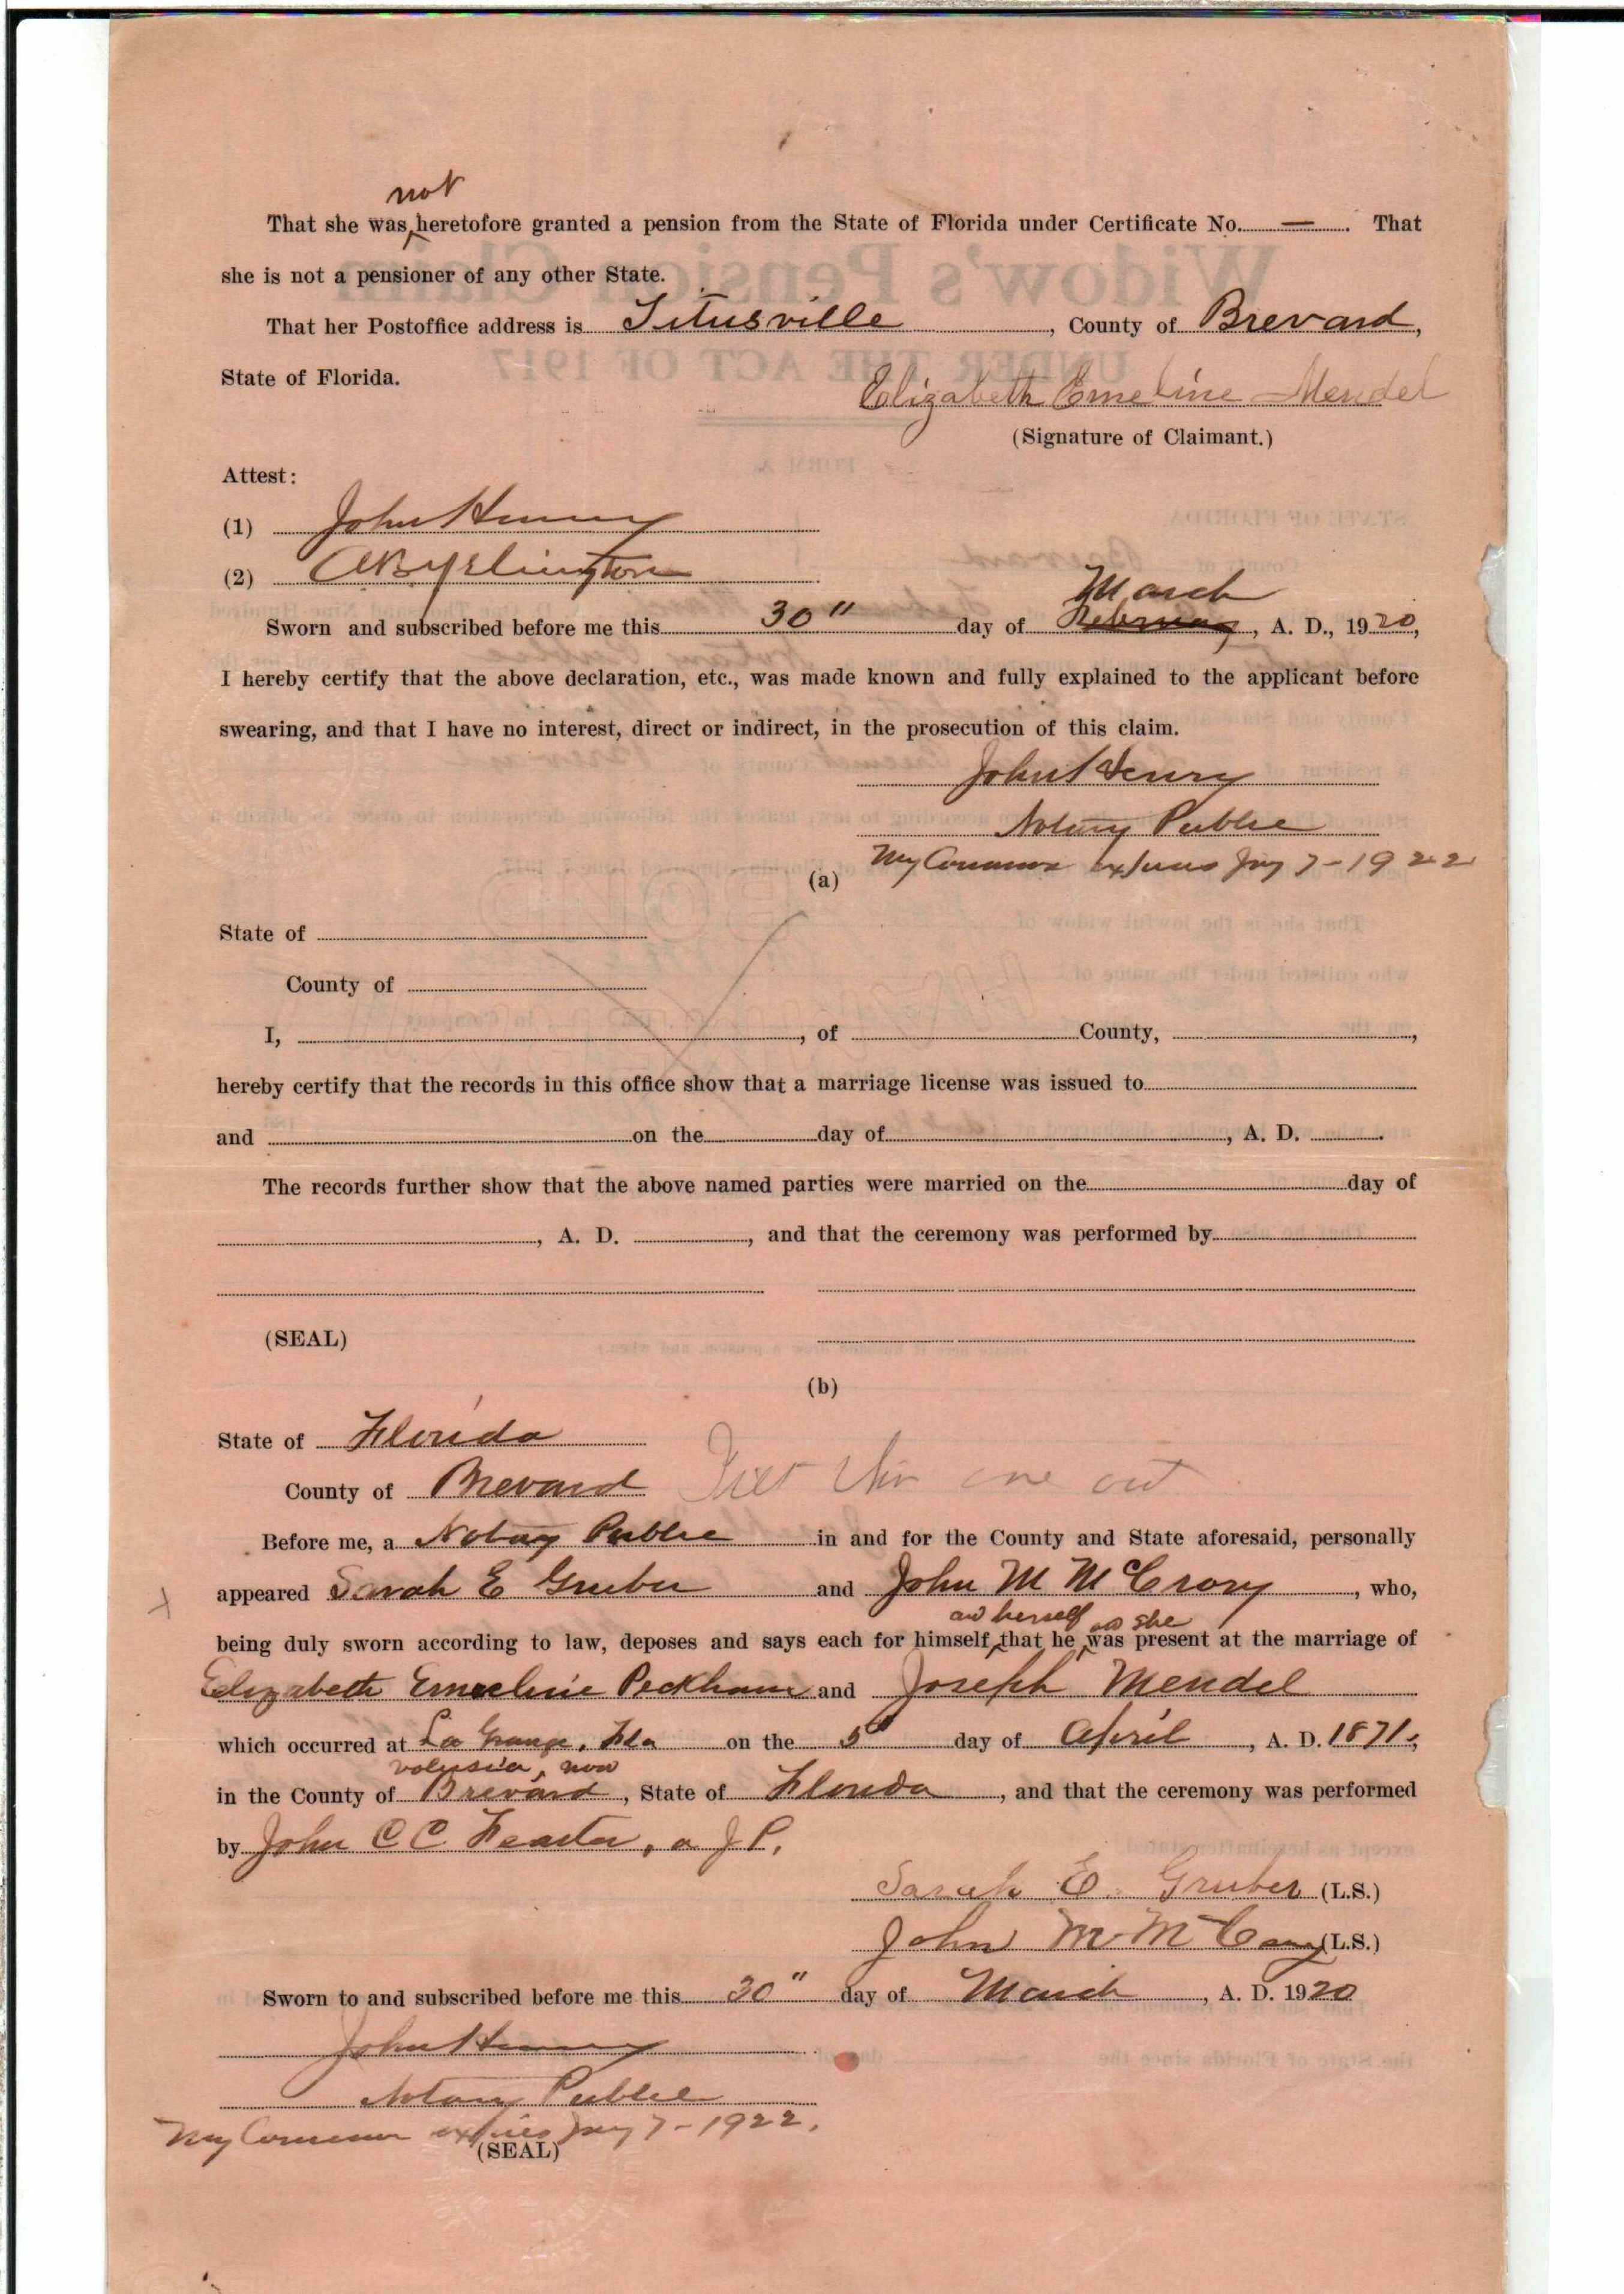 not
That she was heretofore granted a pension from the State of Florida under Certificate No. — . That
she is not a pensioner of any other State.
That her Postoffice address is Titusville, County of Brevard,
State of Florida.
Elizabeth Emeline Mendel
(Signature of Claimant.)
Attest:
(1) John Henry
(2)
March
Sworn and subscribed before me this 30" day of February, A. D., 1920,
I hereby certify that the above declaration, etc., was made known and fully explained to the applicant before
swearing, and that I have no interest, direct or indirect, in the prosecution of this claim.
John Henry
Notary Public
My Commission expires Jany 7-1922
(a)
State of
County of
I, , of County, ,
hereby certify that the records in this office show that a marriage license was issued to
and on the day of , A. D. .
The records further show that the above named parties were married on the day of
, A. D. , and that the ceremony was performed by
(SEAL)
(b)
State of Florida
County of Brevard this one out
Before me, a Notary Public in and for the County and State aforesaid, personally
appeared Sarah E Gruber and John M McCrory, who,
and herself or she
being duly sworn according to law, deposes and says each for himself, that he was present at the marriage of
Elizabeth Emeline Peckham and Joseph Mendel
which occurred at La Grange, Fla on the 5" day of April, A. D. 1871,
Volusia, now
in the County of Brevard, State of Florida, and that the ceremony was performed
by John C C Feaster, a J P.
Sarah E. Gruber (L.S.)
John M McCrory (L.S.)
Sworn to and subscribed before me this 30" day of March, A. D. 1920
John Henry
Notary Public
My Commission expires Jany 7-1922.
(SEAL)